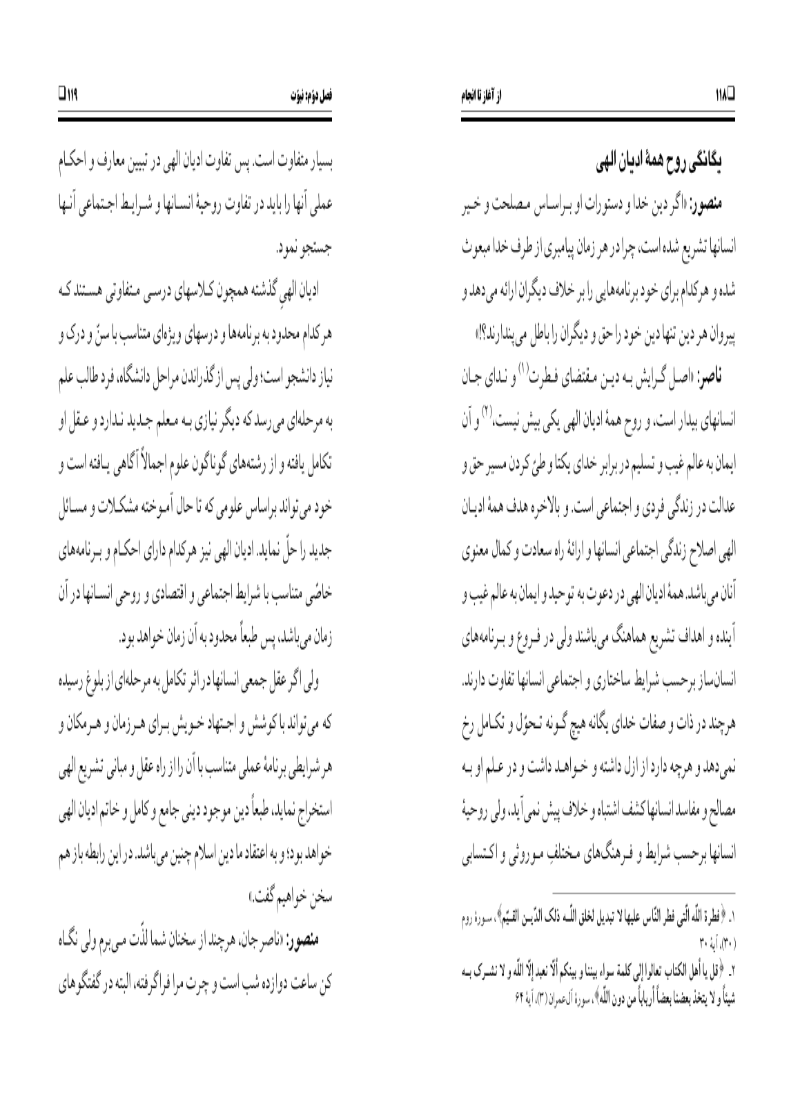 ❑ ۱۱۸ از آغاز تا انجام
یگانگی روح همهٔ ادیان الهی
منصور: «اگر دین خدا و دستورات او براساس مصلحت و خیر
انسانها تشریع شده است، چرا در هر زمان پیامبری از طرف خدا مبعوث
شده و هرکدام برای خود برنامه‌هایی را بر خلاف دیگران ارائه می‌دهد و
پیروان هر دین تنها دین خود را حق و دیگران را باطل می‌پندارند؟!»
ناصر: «اصل گرایش به دین مقتضای فطرت(۱) و ندای جان
انسانهای بیدار است، و روح همهٔ ادیان الهی یکی بیش نیست،(۲) و آن
ایمان به عالم غیب و تسلیم در برابر خدای یکتا و طیّ کردن مسیر حق و
عدالت در زندگی فردی و اجتماعی است. و بالاخره هدف همهٔ ادیان
الهی اصلاح زندگی اجتماعی انسانها و ارائهٔ راه سعادت و کمال معنوی
آنان می‌باشد. همهٔ ادیان الهی در دعوت به توحید و ایمان به عالم غیب و
آینده و اهداف تشریع هماهنگ می‌باشند ولی در فروع و برنامه‌های
انسان‌ساز برحسب شرایط ساختاری و اجتماعی انسانها تفاوت دارند.
هرچند در ذات و صفات خدای یگانه هیچ گونه تحوّل و تکامل رخ
نمی‌دهد و هرچه دارد از ازل داشته و خواهد داشت و در علم او به
مصالح و مفاسد انسانها کشف اشتباه و خلاف پیش نمی‌آید، ولی روحیهٔ
انسانها برحسب شرایط و فرهنگ‌های مختلفِ موروثی و اکتسابی
۱ـ ﴿فطرة اللّه الّتی فطر النّاس علیها لا تبدیل لخلق اللّه ذلک الدّین القیّم﴾، سورهٔ روم
(۳۰)، آیهٔ ۳۰
۲ـ ﴿قل یا أهل الکتاب تعالوا إلی کلمة سواء بیننا و بینکم ألّا نعبد إلّا اللّه و لا نشرک به
شیئاً و لا یتخذ بعضنا بعضاً أرباباً من دون اللّه﴾، سورهٔ آل‌عمران (۳)، آیهٔ ۶۴
فصل دوّم: نبوّت ۱۱۹ ❑
بسیار متفاوت است. پس تفاوت ادیان الهی در تبیین معارف و احکام
عملی آنها را باید در تفاوت روحیهٔ انسانها و شرایط اجتماعی آنها
جستجو نمود.
ادیان الهیِ گذشته همچون کلاسهای درسی متفاوتی هستند که
هرکدام محدود به برنامه‌ها و درسهای ویژه‌ای متناسب با سنّ و درک و
نیاز دانشجو است؛ ولی پس از گذراندن مراحل دانشگاه، فرد طالب علم
به مرحله‌ای می‌رسد که دیگر نیازی به معلم جدید ندارد و عقل او
تکامل یافته و از رشته‌های گوناگون علوم اجمالاً آگاهی یافته است و
خود می‌تواند براساس علومی که تا حال آموخته مشکلات و مسائل
جدید را حلّ نماید. ادیان الهی نیز هرکدام دارای احکام و برنامه‌های
خاصّی متناسب با شرایط اجتماعی و اقتصادی و روحی انسانها در آن
زمان می‌باشد، پس طبعاً محدود به آن زمان خواهد بود.
ولی اگر عقل جمعی انسانها در اثر تکامل به مرحله‌ای از بلوغ رسیده
که می‌تواند با کوشش و اجتهاد خویش برای هرزمان و هرمکان و
هر شرایطی برنامهٔ عملی متناسب با آن را از راه عقل و مبانی تشریع الهی
استخراج نماید، طبعاً دین موجود دینی جامع و کامل و خاتم ادیان الهی
خواهد بود؛ و به اعتقاد ما دین اسلام چنین می‌باشد. در این رابطه باز هم
سخن خواهیم گفت.»
منصور: «ناصر جان، هرچند از سخنان شما لذّت می‌برم ولی نگاه
کن ساعت دوازده شب است و چرت مرا فراگرفته، البته در گفتگوهای